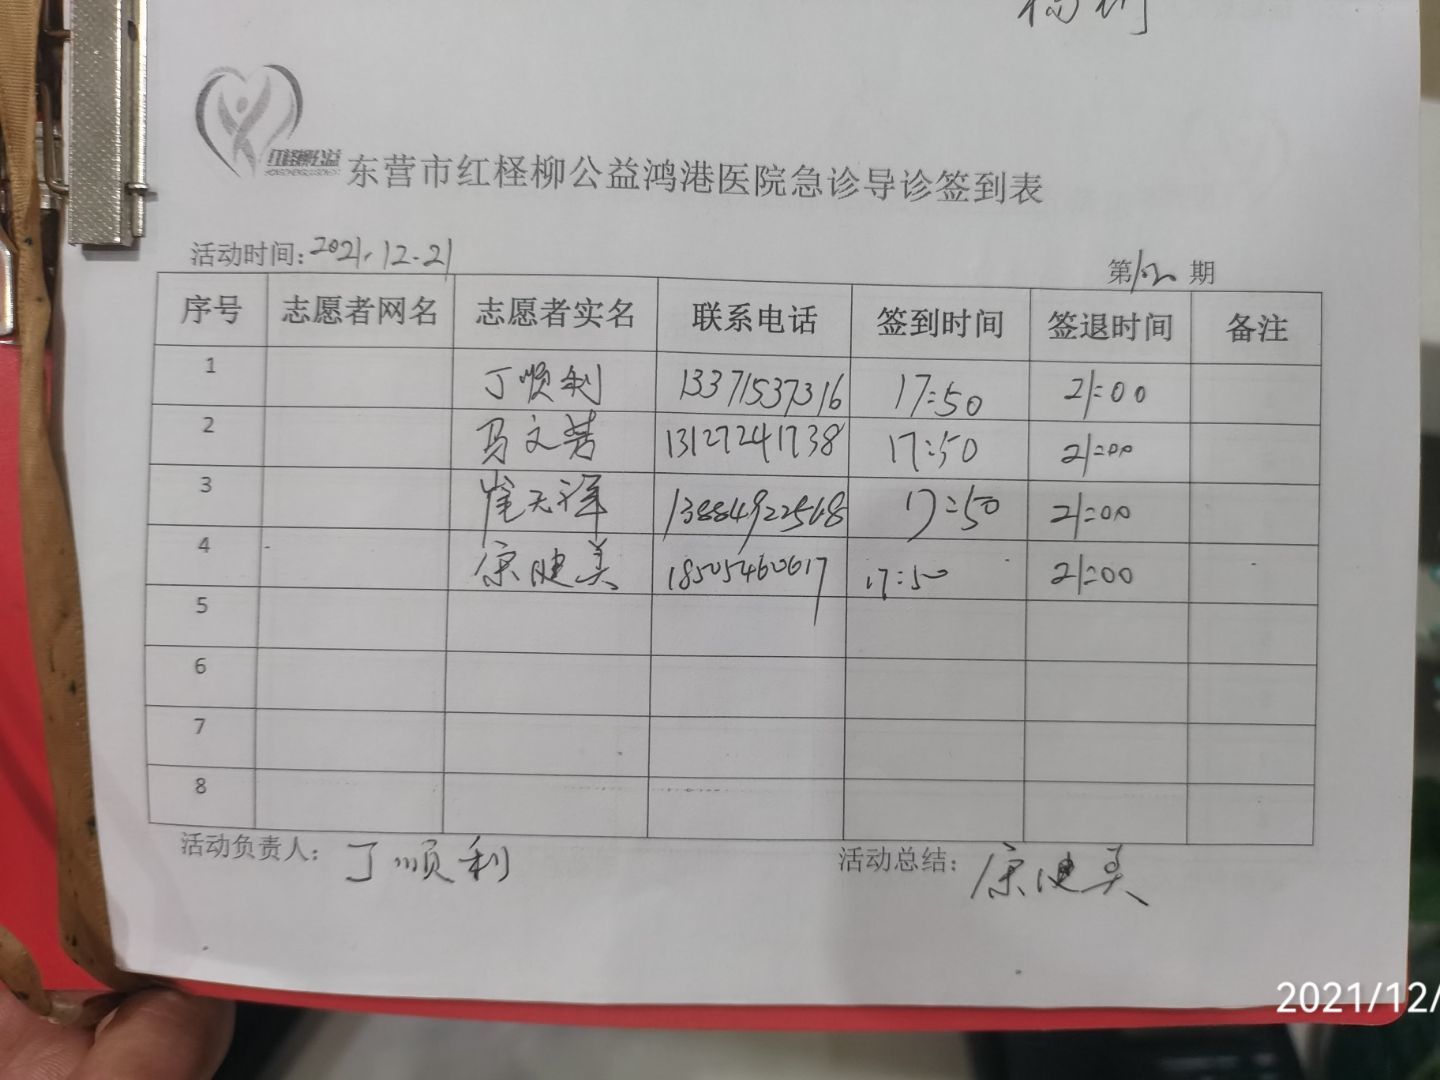 红柽柳公益
东营市红柽柳公益鸿港医院急诊导诊签到表
活动时间：2021.12.21
第 期
序号 志愿者网名 志愿者实名 联系电话 签到时间 签退时间 备注
1 丁顺利 13371537316 17:50 21:00
2 马文 13127241738 17:50 21:00
3 崔天祥 13884922568 17:50 21:00
4 康健美 18505460617 17:50 21:00
5
6
7
8
活动负责人：丁顺利
活动总结：康健美
2021/12/